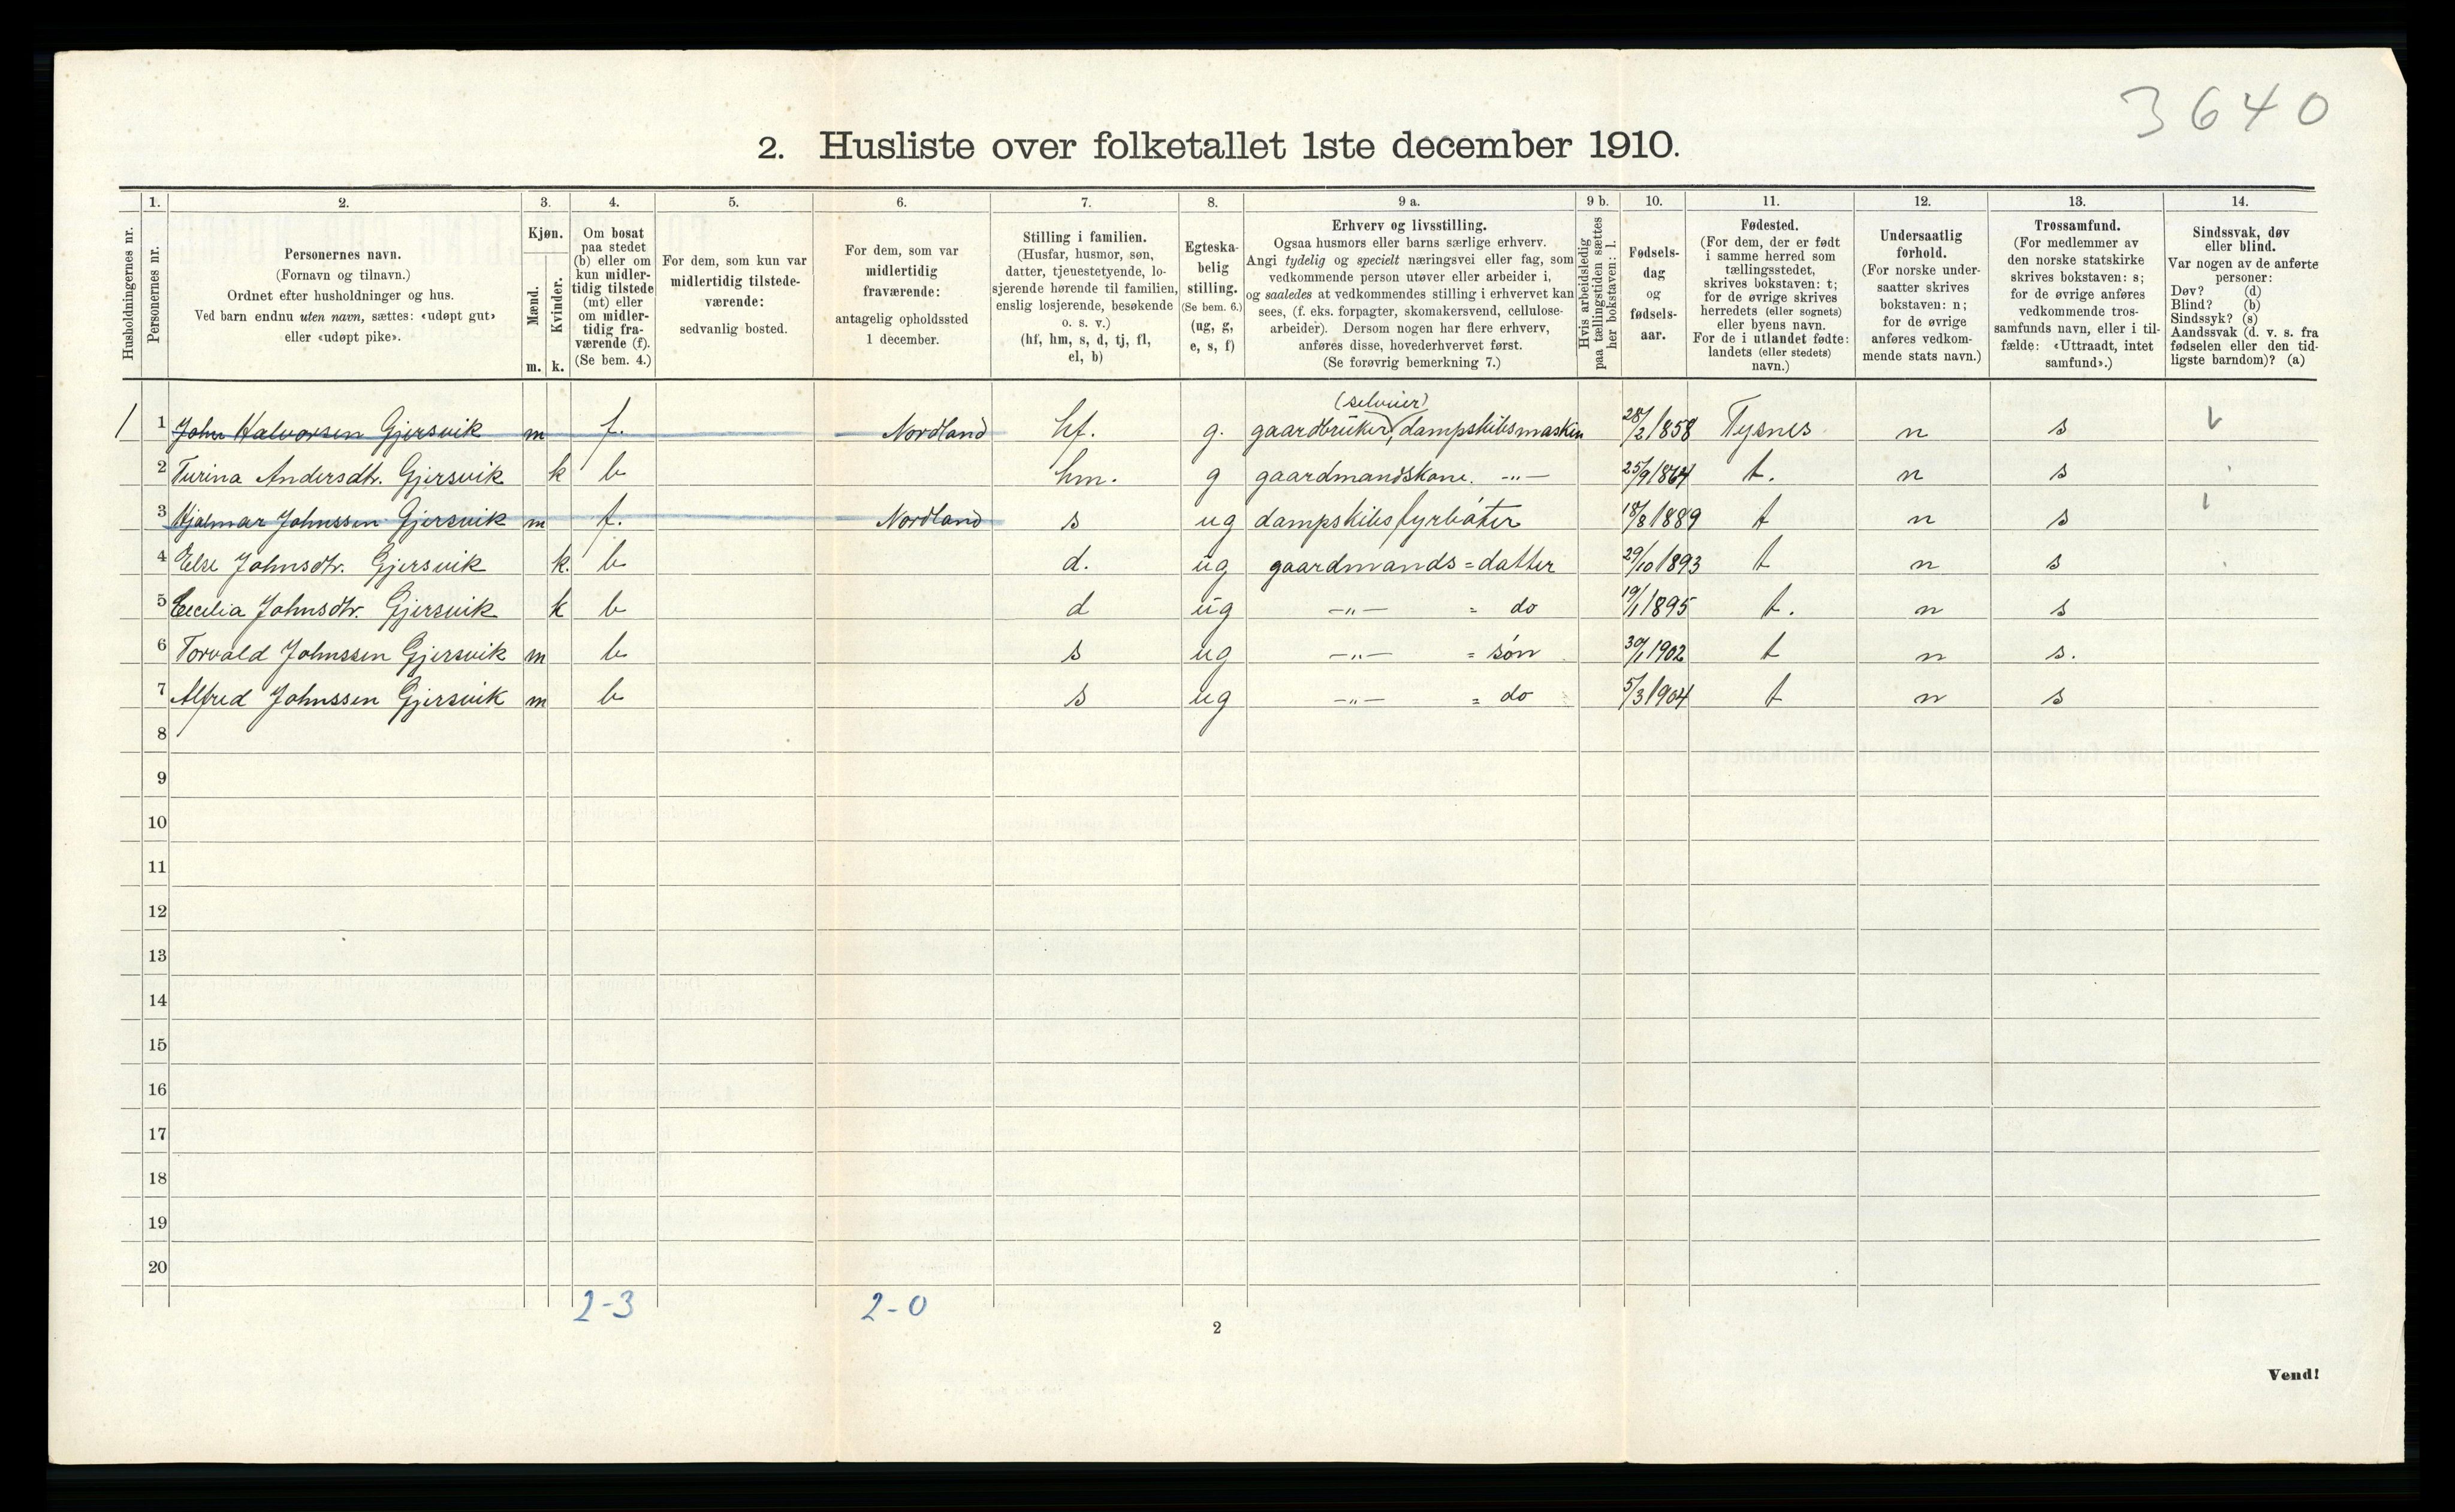 3640
2. Husliste over folketallet 1ste december 1910.
Husholdningernes nr.
1.
Personernes nr.
2.
Personernes navn.
(Fornavn og tilnavn.)
Ordnet efter husholdninger og hus.
Ved barn endnu uten navn, sættes: «udøpt gut»
eller «udøpt pike».
3.
Kjøn.
Mænd.
Kvinder.
m. k.
4.
Om bosat
paa stedet
(b) eller om
kun midler-
tidig tilstede
(mt) eller
om midler-
tidig fra-
værende (f).
(Se bem. 4.)
5.
For dem, som kun var
midlertidig tilstede-
værende:
sedvanlig bosted.
6.
For dem, som var
midlertidig
fraværende:
antagelig opholdssted
1 december.
7.
Stilling i familien.
(Husfar, husmor, søn,
datter, tjenestetyende, lo-
sjerende hørende til familien,
enslig losjerende, besøkende
o. s. v.)
(hf, hm, s, d, tj, fl,
el, b)
8.
Egteska-
belig
stilling.
(Se bem. 6.)
(ug, g,
e, s, f)
9 a.
Erhverv og livsstilling.
Ogsaa husmors eller barns særlige erhverv.
Angi tydelig og specielt næringsvei eller fag, som
vedkommende person utøver eller arbeider i,
og saaledes at vedkommendes stilling i erhvervet kan
sees, (f. eks. forpagter, skomakersvend, cellulose-
arbeider). Dersom nogen har flere erhverv,
anføres disse, hovederhvervet først.
(Se forøvrig bemerkning 7.)
9 b.
Hvis arbeidsledig
paa tællingstiden sættes
her bokstaven: l.
10.
Fødsels-
dag
og
fødsels-
aar.
11.
Fødested.
(For dem, der er født
i samme herred som
tællingsstedet,
skrives bokstaven: t;
for de øvrige skrives
herredets (eller sognets)
eller byens navn.
For de i utlandet fødte:
landets (eller stedets)
navn.)
12.
Undersaatlig
forhold.
(For norske under-
saatter skrives
bokstaven: n;
for de øvrige
anføres vedkom-
mende stats navn.)
13.
Trossamfund.
(For medlemmer av
den norske statskirke
skrives bokstaven: s;
for de øvrige anføres
vedkommende tros-
samfunds navn, eller i til-
fælde: «Uttraadt, intet
samfund».)
14.
Sindssvak, døv
eller blind.
Var nogen av de anførte
personer:
Døv? (d)
Blind? (b)
Sindssyk? (s)
Aandssvak (d. v. s. fra
fødselen eller den tid-
ligste barndom)? (a)
(selveier)
1 1 John Halvorsen Gjersvik m f. Nordland hf. g. gaardbruker, dampskibsmaskin 28/2 1858 Tysnes n s
2 Turina Andersdtr. Gjersvik k b hm. g gaardmandskone. -"- 25/9 1864 t. n s
3 Hjalmar Johnssen Gjersvik m f. Nordland s ug dampskibs fyrbøter 18/8 1889 t n s
4 Else Johnsdtr. Gjersvik k. b d. ug gaardmands = datter 29/10 1893 t n s
5 Cecilia Johnsdtr. Gjersvik k b d ug -"- = do 19/1 1895 t. n s
6 Torvald Johnssen Gjersvik m b s ug -"- = søn 30/1 1902 t n s.
7 Alfred Johnssen Gjersvik m b s ug -"- = do 5/3 1904 t n s
8
9
10
11
12
13
14
15
16
17
18
19
20
2-3 2-0
2
Vend!